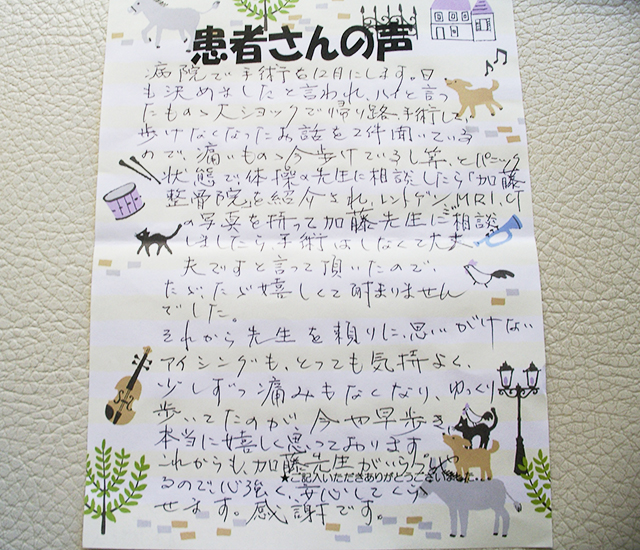 患者さんの声
病院で手術を12月にします。日
も決めましたと言われ、ハイと言っ
たものゝ大ショックで帰り路、手術して
歩けなくなったお話を2件聞いている
ので、痛いものゝ今歩けているし等、とパニック
状態で体操の先生に相談したら「加藤
整骨院を紹介され、レントゲン、MRI、CT
の写真を持って加藤先生にご相談
しましたら、手術はしなくて大丈
夫ですと言って頂いたので、
たゞ、たゞ嬉しくて
でした。
それから先生を頼りに、思いがけない
アイシングも、とっても気持よく、
少しずつ痛みもなくなり、ゆっくり
歩いてたのが今や早歩き、
本当に嬉しく思っております
これからも、加藤先生がいらっしゃ
★ご記入いただきありがとうございました
るので心強く、安心して
せます。感謝です。